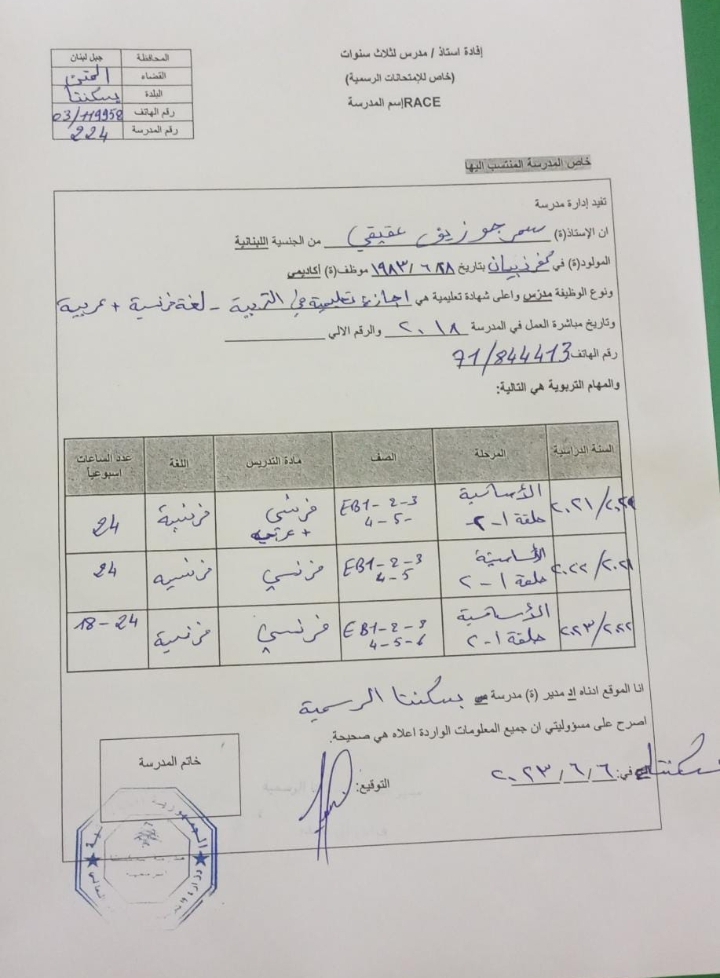 إفادة استاذ / مدرس لثلاث سنوات
(خاص للإمتحانات الرسمية)
RACEإسم المدرسة
المحافظة جبل لبنان
القضاء المتن
البلدة بسكنتا
رقم الهاتف 03/119958
رقم المدرسة 224
خاص المدرسة المنتسب اليها
تفيد إدارة مدرسة
ان الإستاذ(ة) سمر جوزيف عقيقي من الجنسية اللبنانية
المولود(ة) في كفرذبيان بتاريخ ٢٨/٦/١٩٨٣ موظف(ة) أكاديمي
ونوع الوظيفة مدرّس واعلى شهادة تعليمية هي اجازة تعليمية في التربية - لغة فرنسية + عربية
وتاريخ مباشرة العمل في المدرسة ٢٠١٨ والرقم الالي
رقم الهاتف 71/844413
والمهام التربوية هي التالية:
السنة الدراسية المرحلة الصف مادة التدريس اللغة عدد الساعات اسبوعياً
الأساسية EB1-2-3 فرنسي فرنسية 24
حلقة ١-٢ 4-5- + عربي
٢٠٢٢/٢٠٢١ الأساسية EB1-2-3 فرنسي فرنسية 24
حلقة ١-٢ 4-5
٢٠٢٣/٢٠٢٢ الأساسية EB1-2-3 فرنسي فرنسية 18-24
حلقة ١-٢ 4-5-6
انا الموقع ادناه مدير (ة) مدرسة بسكنتا الرسمية
اصرح على مسؤوليتي ان جميع المعلومات الواردة اعلاه هي صحيحة.
بسكنتا في: ٦/٦/٢٠٢٣
التوقيع:
خاتم المدرسة